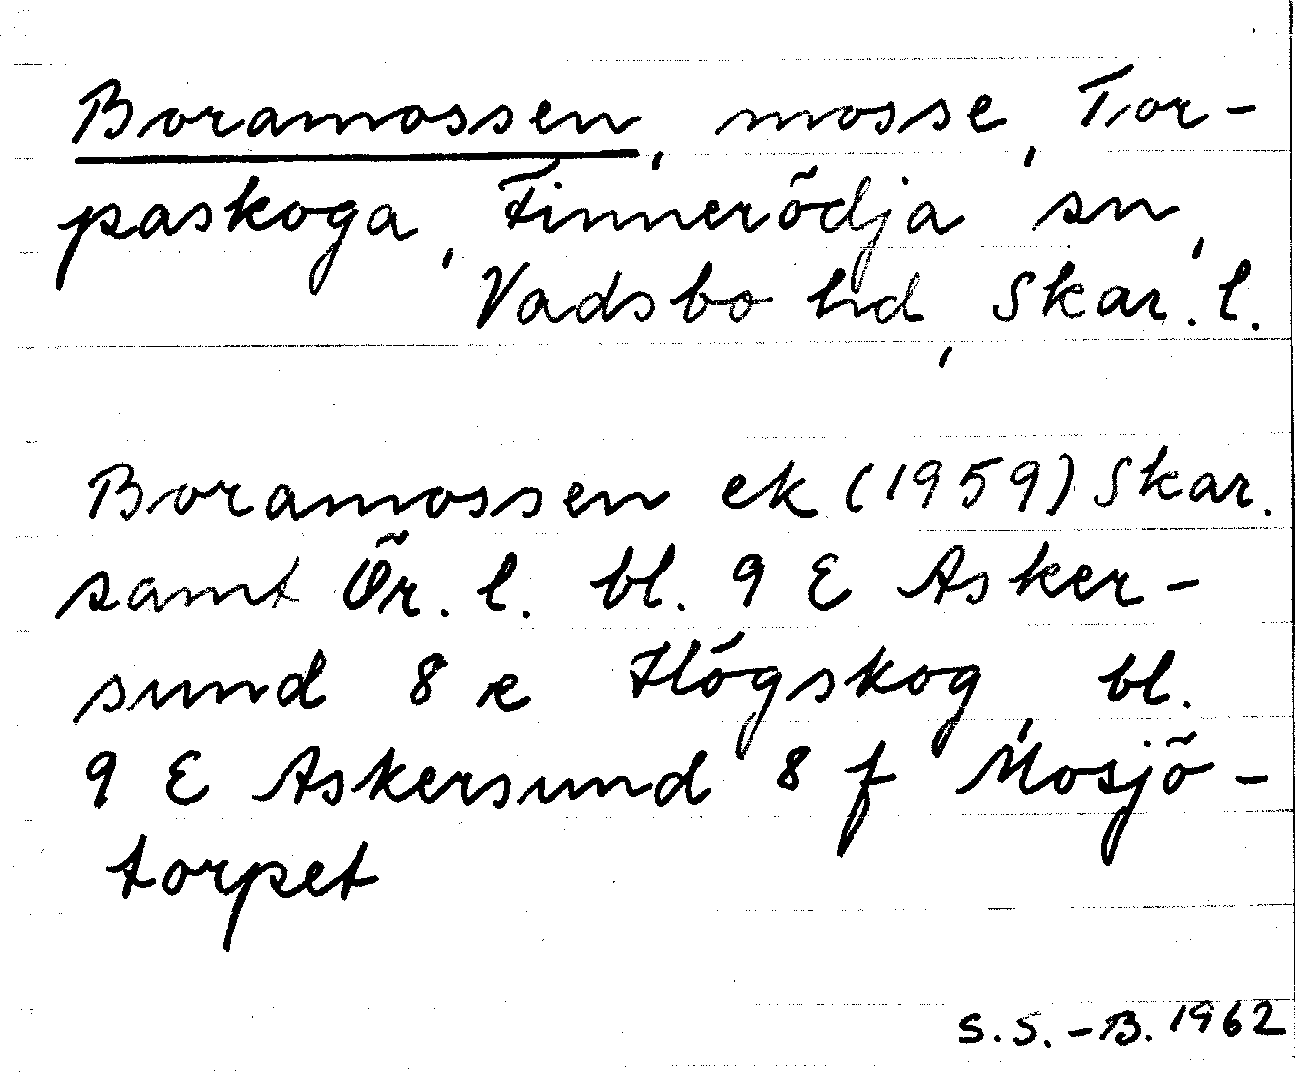 Boramossen, mosse, Tor-
paskoga, Finnerödja sn,
Vadsbo hd, Skar. l.
Boramossen ek (1959) Skar.
samt Ör. l. bl. 9 E Asker-
sund 8 e Högskog, bl.
9 E Askersund 8 f Mosjö-
torpet
S. S. -B. 1962